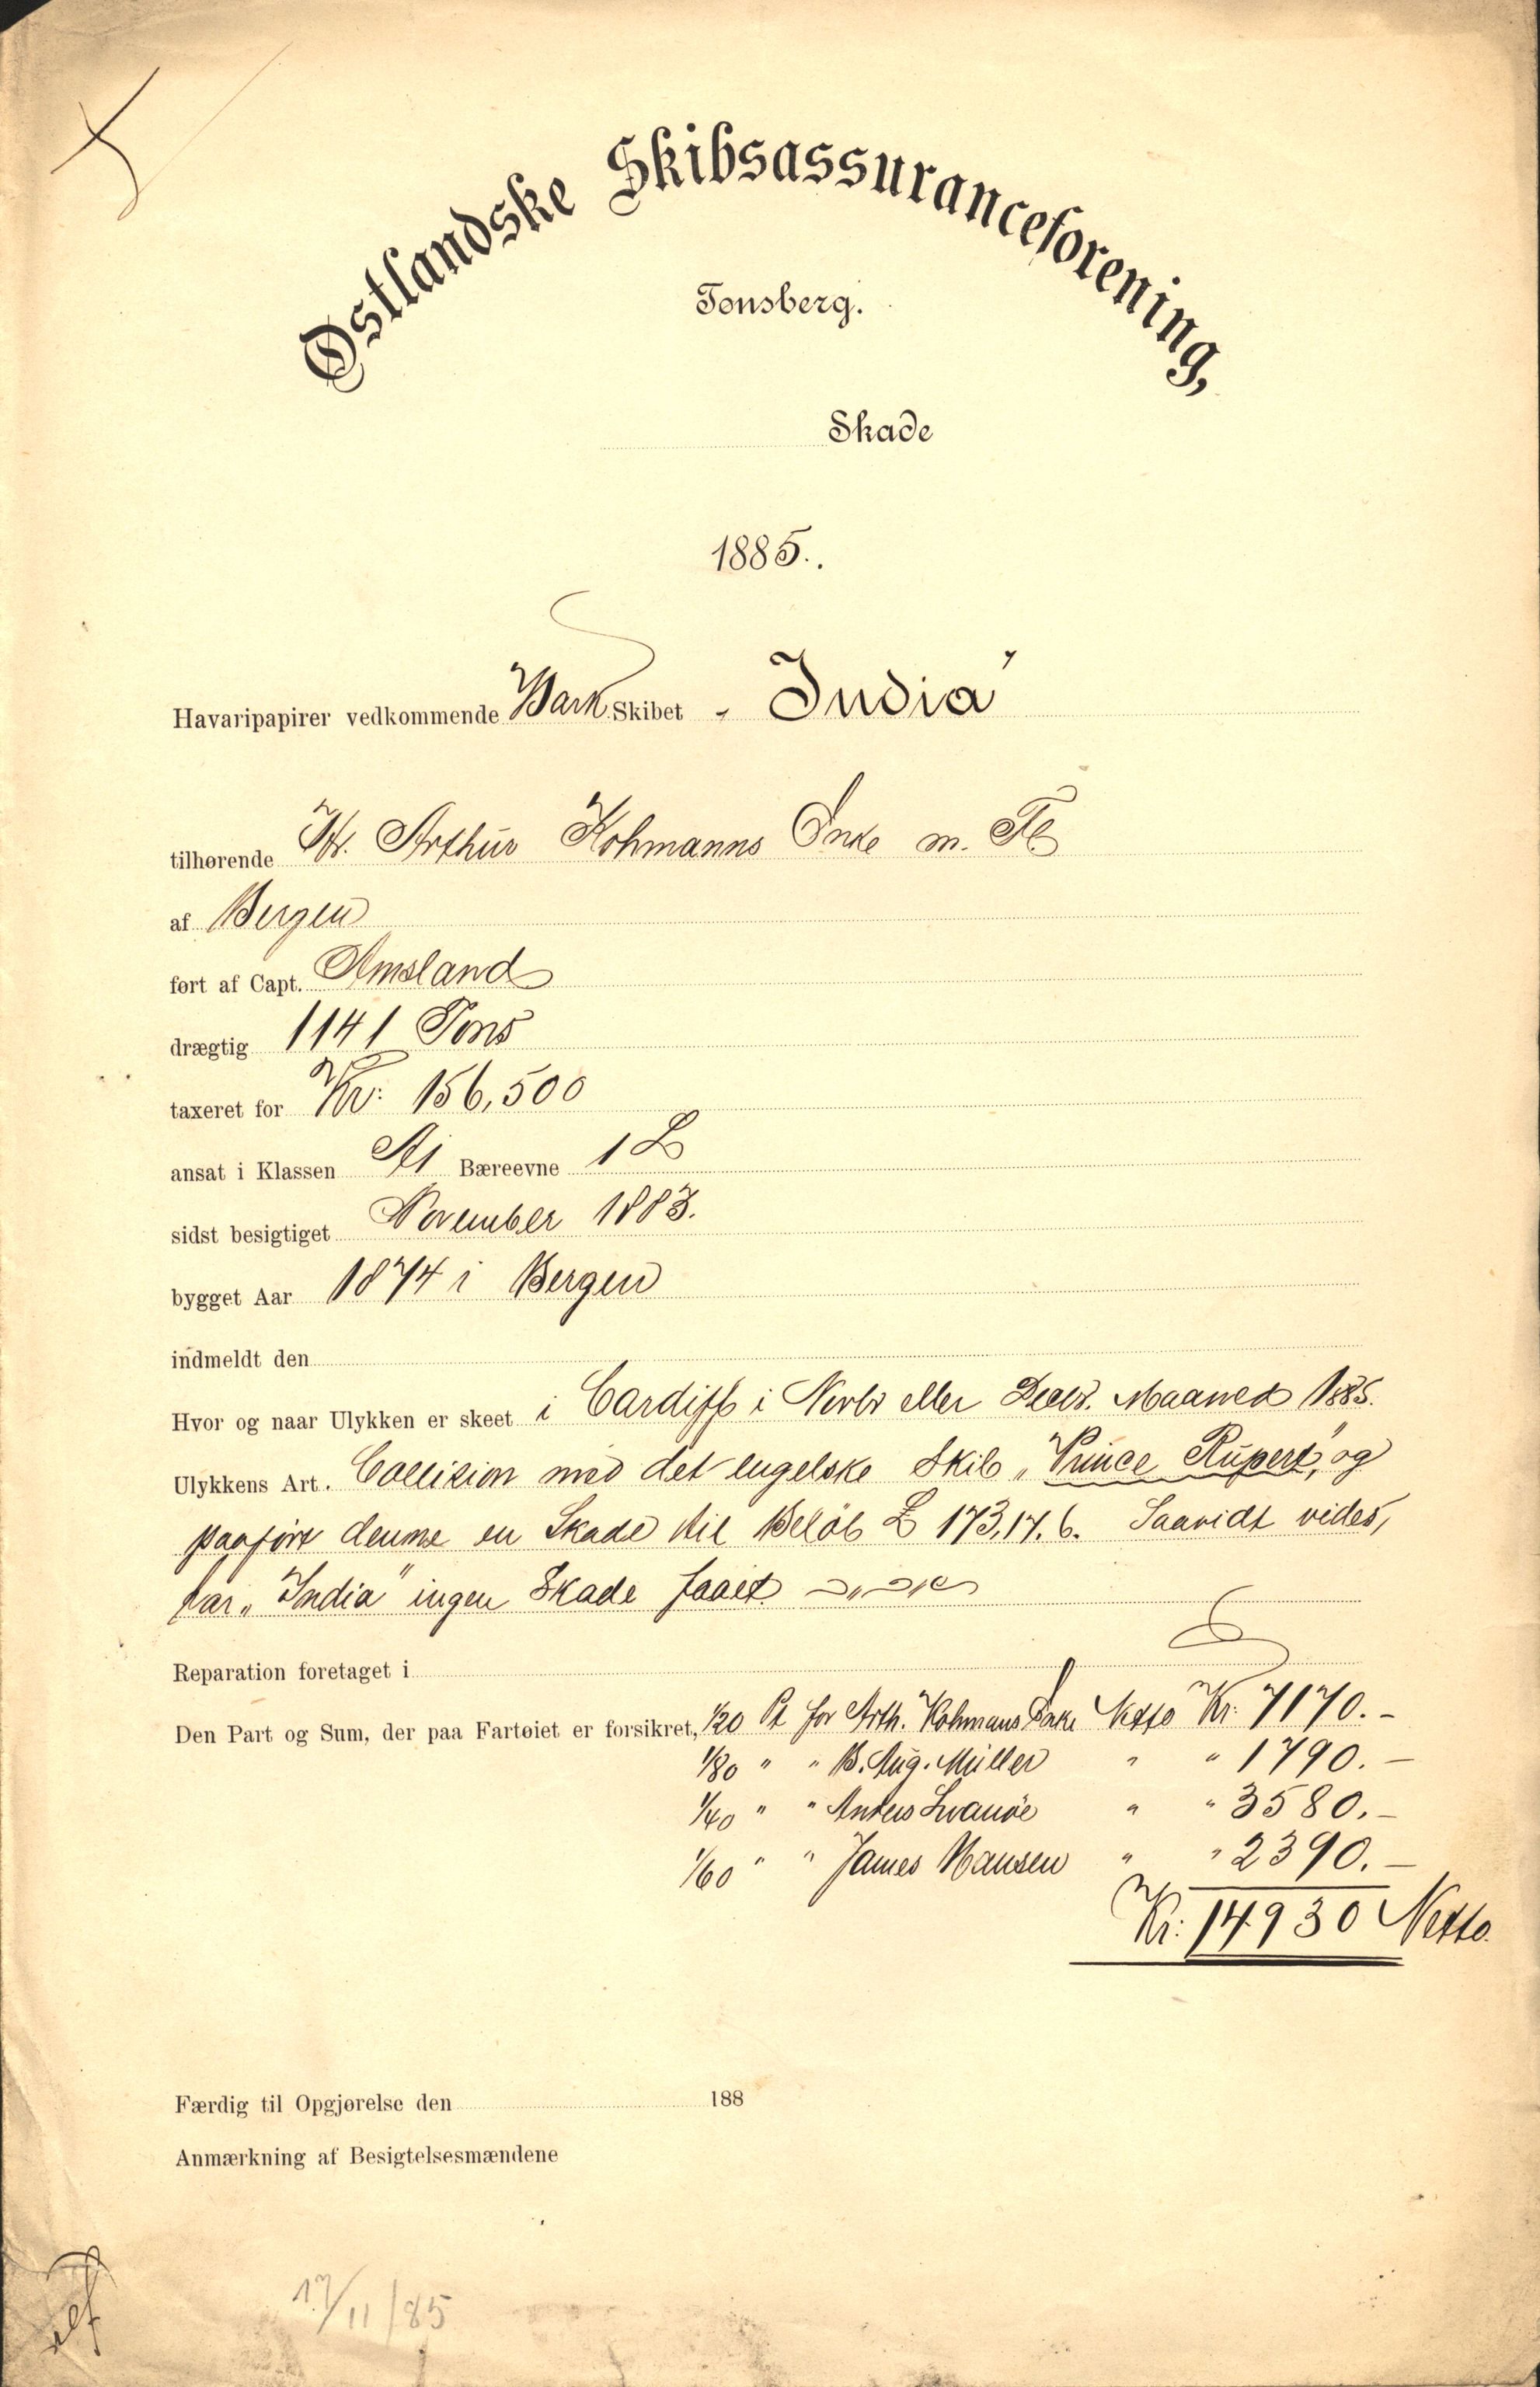 Østlandske Skibsassuranceforening,
Tønsberg.
Skade
1885.
Havaripapirer vedkommende Bark Skibet „India"
tilhørende Hr. Arthur Kohmanns Enke m. Fl
af Bergen
ført af Capt. Amsland
drægtig 1141 Tons
taxeret for Kr: 156,500
ansat i Klassen A1 Bæreevne 1
sidst besigtiget November 1883.
bygget Aar 1874 i Bergen
indmeldt den
Hvor og naar Ulykken er skeet i Cardiff i Novbr eller Decbr. Maaned 1885.
Ulykkens Art. Collision med det engelske Skib „Prince Rupert", og
paaført denne en Skade til Beløb £ 173,17.6. Saavidt vides,
har „India" ingen Skade faaet.
Reparation foretaget i
Den Part og Sum, der paa Fartøiet er forsikret, 1/20 Pt for Arth. Kohmans Enke Netto Kr. 7170.-
1/80 " " B. Aug. Müller " " 1790.-
1/40 " " Anders Svanöe " " 3580.-
1/60 " " James Hansen " " 2390.-
Kr: 14930 Netto.
Færdig til Opgjørelse den 188
Anmærkning af Besigtelsesmændene
17/11/85